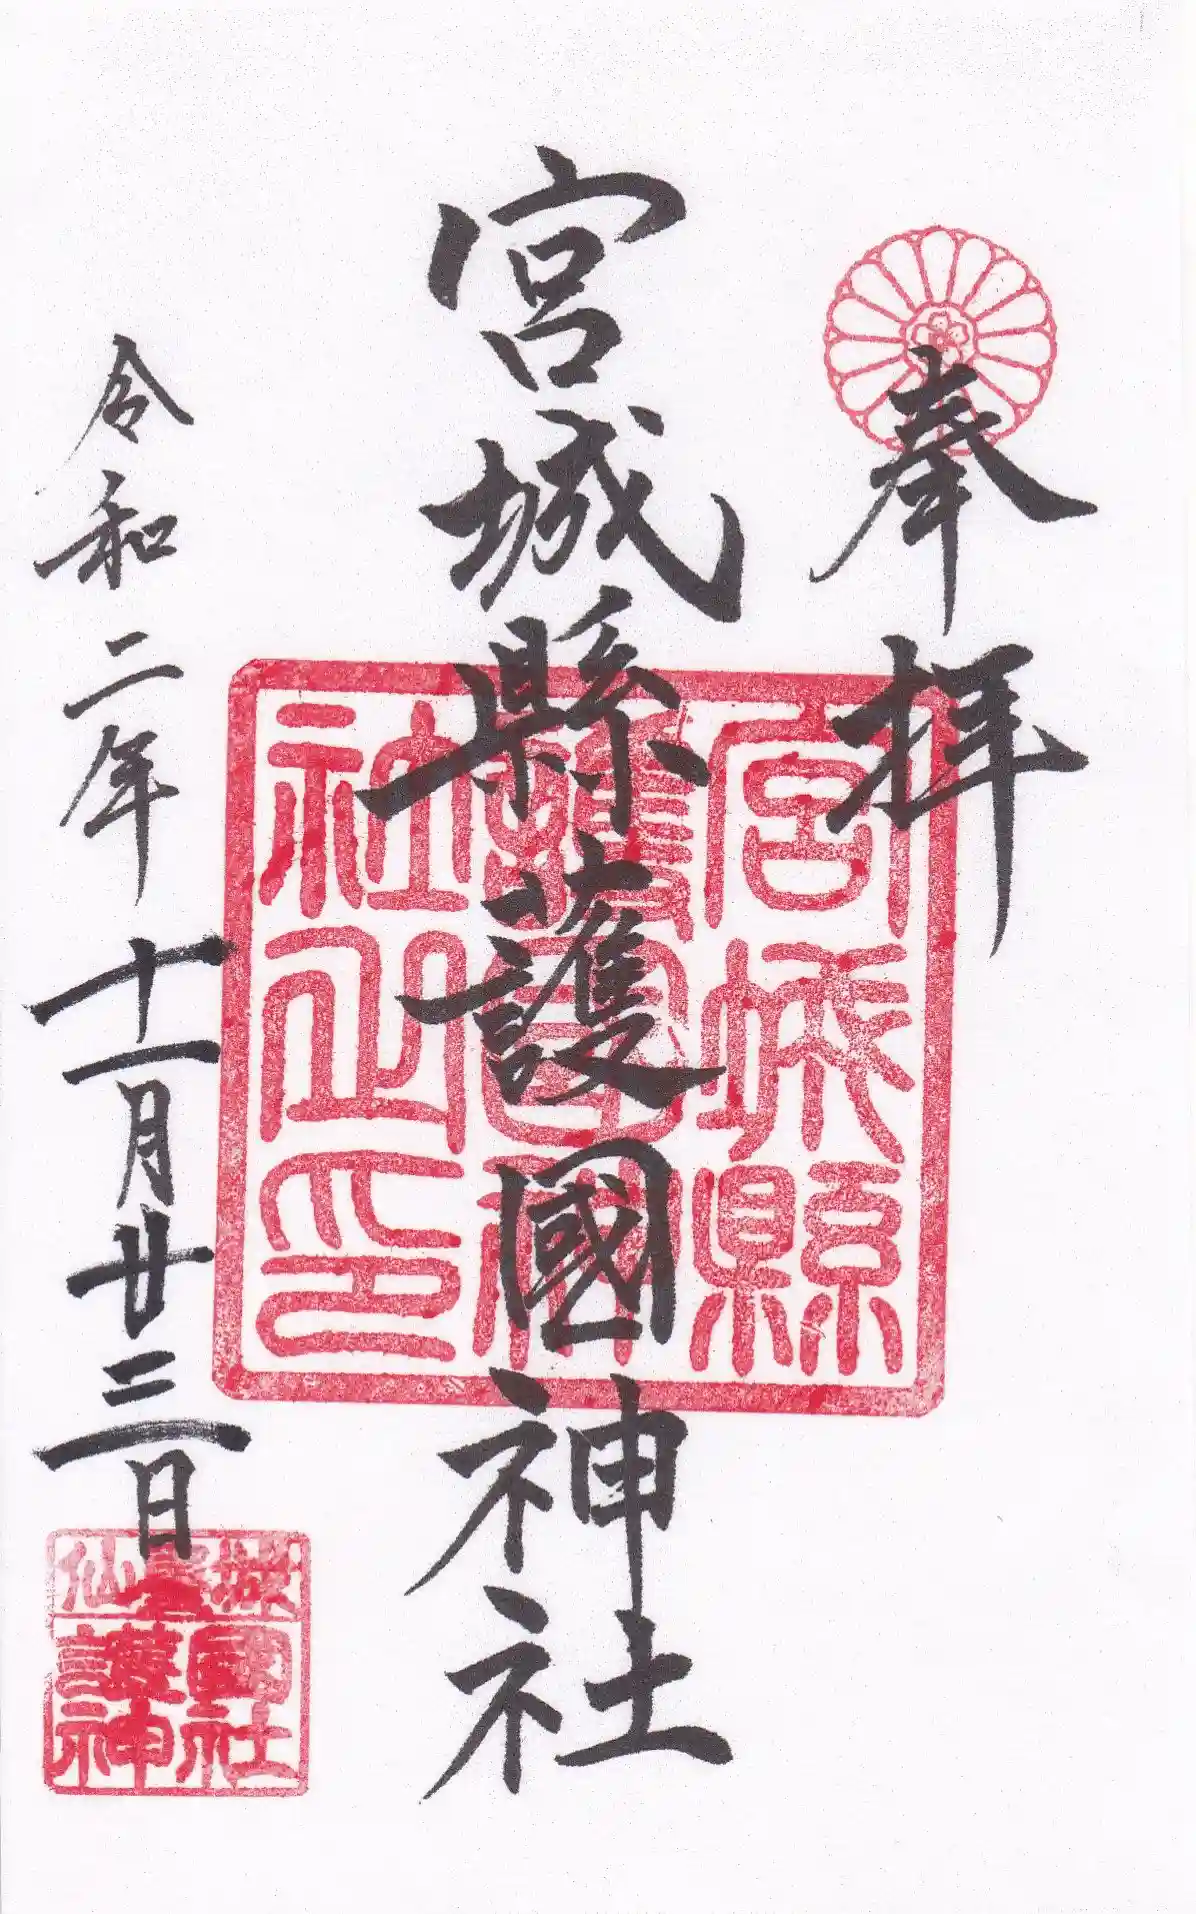 奉拝
宮城縣護國神社
令和二年十一月廿三日
宮城縣
護國神
社之印
仙臺城
護國
神社